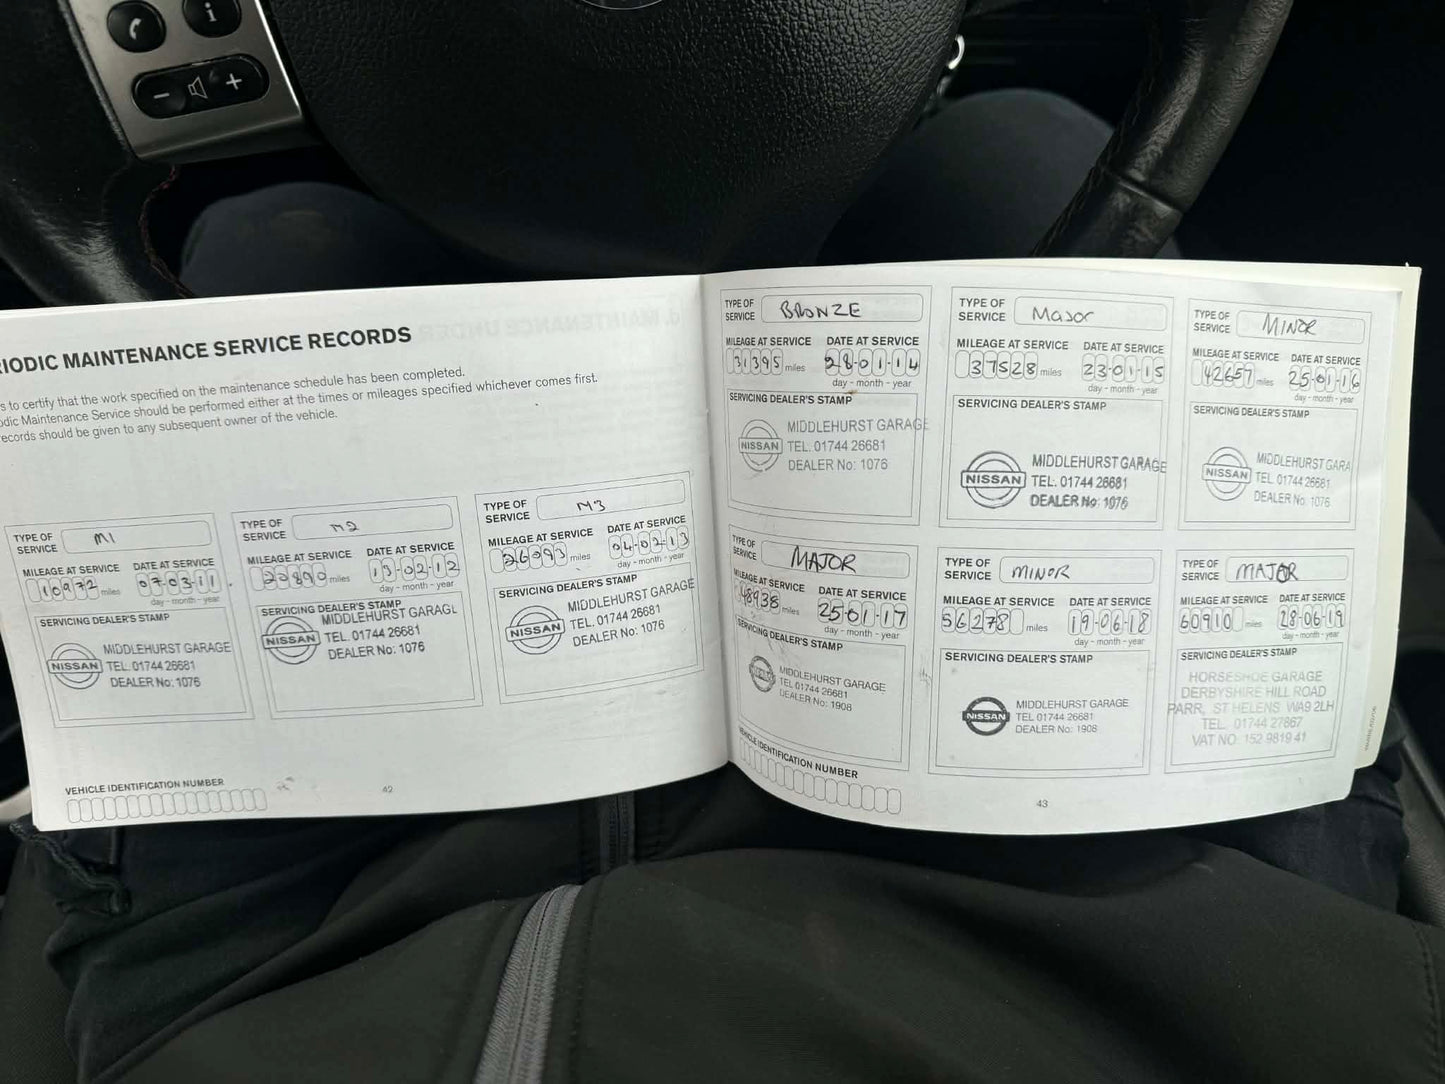 RIODIC MAINTENANCE SERVICE RECORDS
s to certify that the work specified on the maintenance schedule has been completed.
odic Maintenance Service should be performed either at the times or mileages specified whichever comes first.
ecords should be given to any subsequent owner of the vehicle.
TYPE OF SERVICE M1
MILEAGE AT SERVICE DATE AT SERVICE
10972 miles 07-03-11
day - month - year
SERVICING DEALER'S STAMP
NISSAN
MIDDLEHURST GARAGE
TEL. 01744 26681
DEALER No: 1076
TYPE OF SERVICE M2
MILEAGE AT SERVICE DATE AT SERVICE
miles 13-02-12
day - month - year
SERVICING DEALER'S STAMP
NISSAN
MIDDLEHURST GARAGE
TEL. 01744 26681
DEALER No: 1076
TYPE OF SERVICE M3
MILEAGE AT SERVICE DATE AT SERVICE
26093 miles 04-02-13
day - month - year
SERVICING DEALER'S STAMP
NISSAN
MIDDLEHURST GARAGE
TEL. 01744 26681
DEALER No: 1076
VEHICLE IDENTIFICATION NUMBER
42
TYPE OF SERVICE BRONZE
MILEAGE AT SERVICE DATE AT SERVICE
31395 miles 28-01-14
day - month - year
SERVICING DEALER'S STAMP
NISSAN
MIDDLEHURST GARAGE
TEL. 01744 26681
DEALER No: 1076
TYPE OF SERVICE Major
MILEAGE AT SERVICE DATE AT SERVICE
37528 miles 23-01-15
day - month - year
SERVICING DEALER'S STAMP
NISSAN
MIDDLEHURST GARAGE
TEL. 01744 26681
DEALER No: 1076
TYPE OF SERVICE MINOR
MILEAGE AT SERVICE DATE AT SERVICE
42657 miles 25-01-16
day - month - year
SERVICING DEALER'S STAMP
NISSAN
MIDDLEHURST GARA
TEL. 01744 26681
DEALER No: 1076
TYPE OF SERVICE MAJOR
MILEAGE AT SERVICE DATE AT SERVICE
48938 miles 25-01-17
day - month - year
SERVICING DEALER'S STAMP
MIDDLEHURST GARAGE
TEL 01744 26681
DEALER No: 1908
TYPE OF SERVICE MINOR
MILEAGE AT SERVICE DATE AT SERVICE
56278 miles 19-06-18
day - month - year
SERVICING DEALER'S STAMP
NISSAN
MIDDLEHURST GARAGE
TEL 01744 26681
DEALER No: 1908
TYPE OF SERVICE MAJOR
MILEAGE AT SERVICE DATE AT SERVICE
60910 miles 28-06-19
day - month - year
SERVICING DEALER'S STAMP
HORSESHOE GARAGE
DERBYSHIRE HILL ROAD
PARR, ST HELENS WA9 2LH
TEL. 01744 27867
VAT NO: 152 9819 41
VEHICLE IDENTIFICATION NUMBER
43